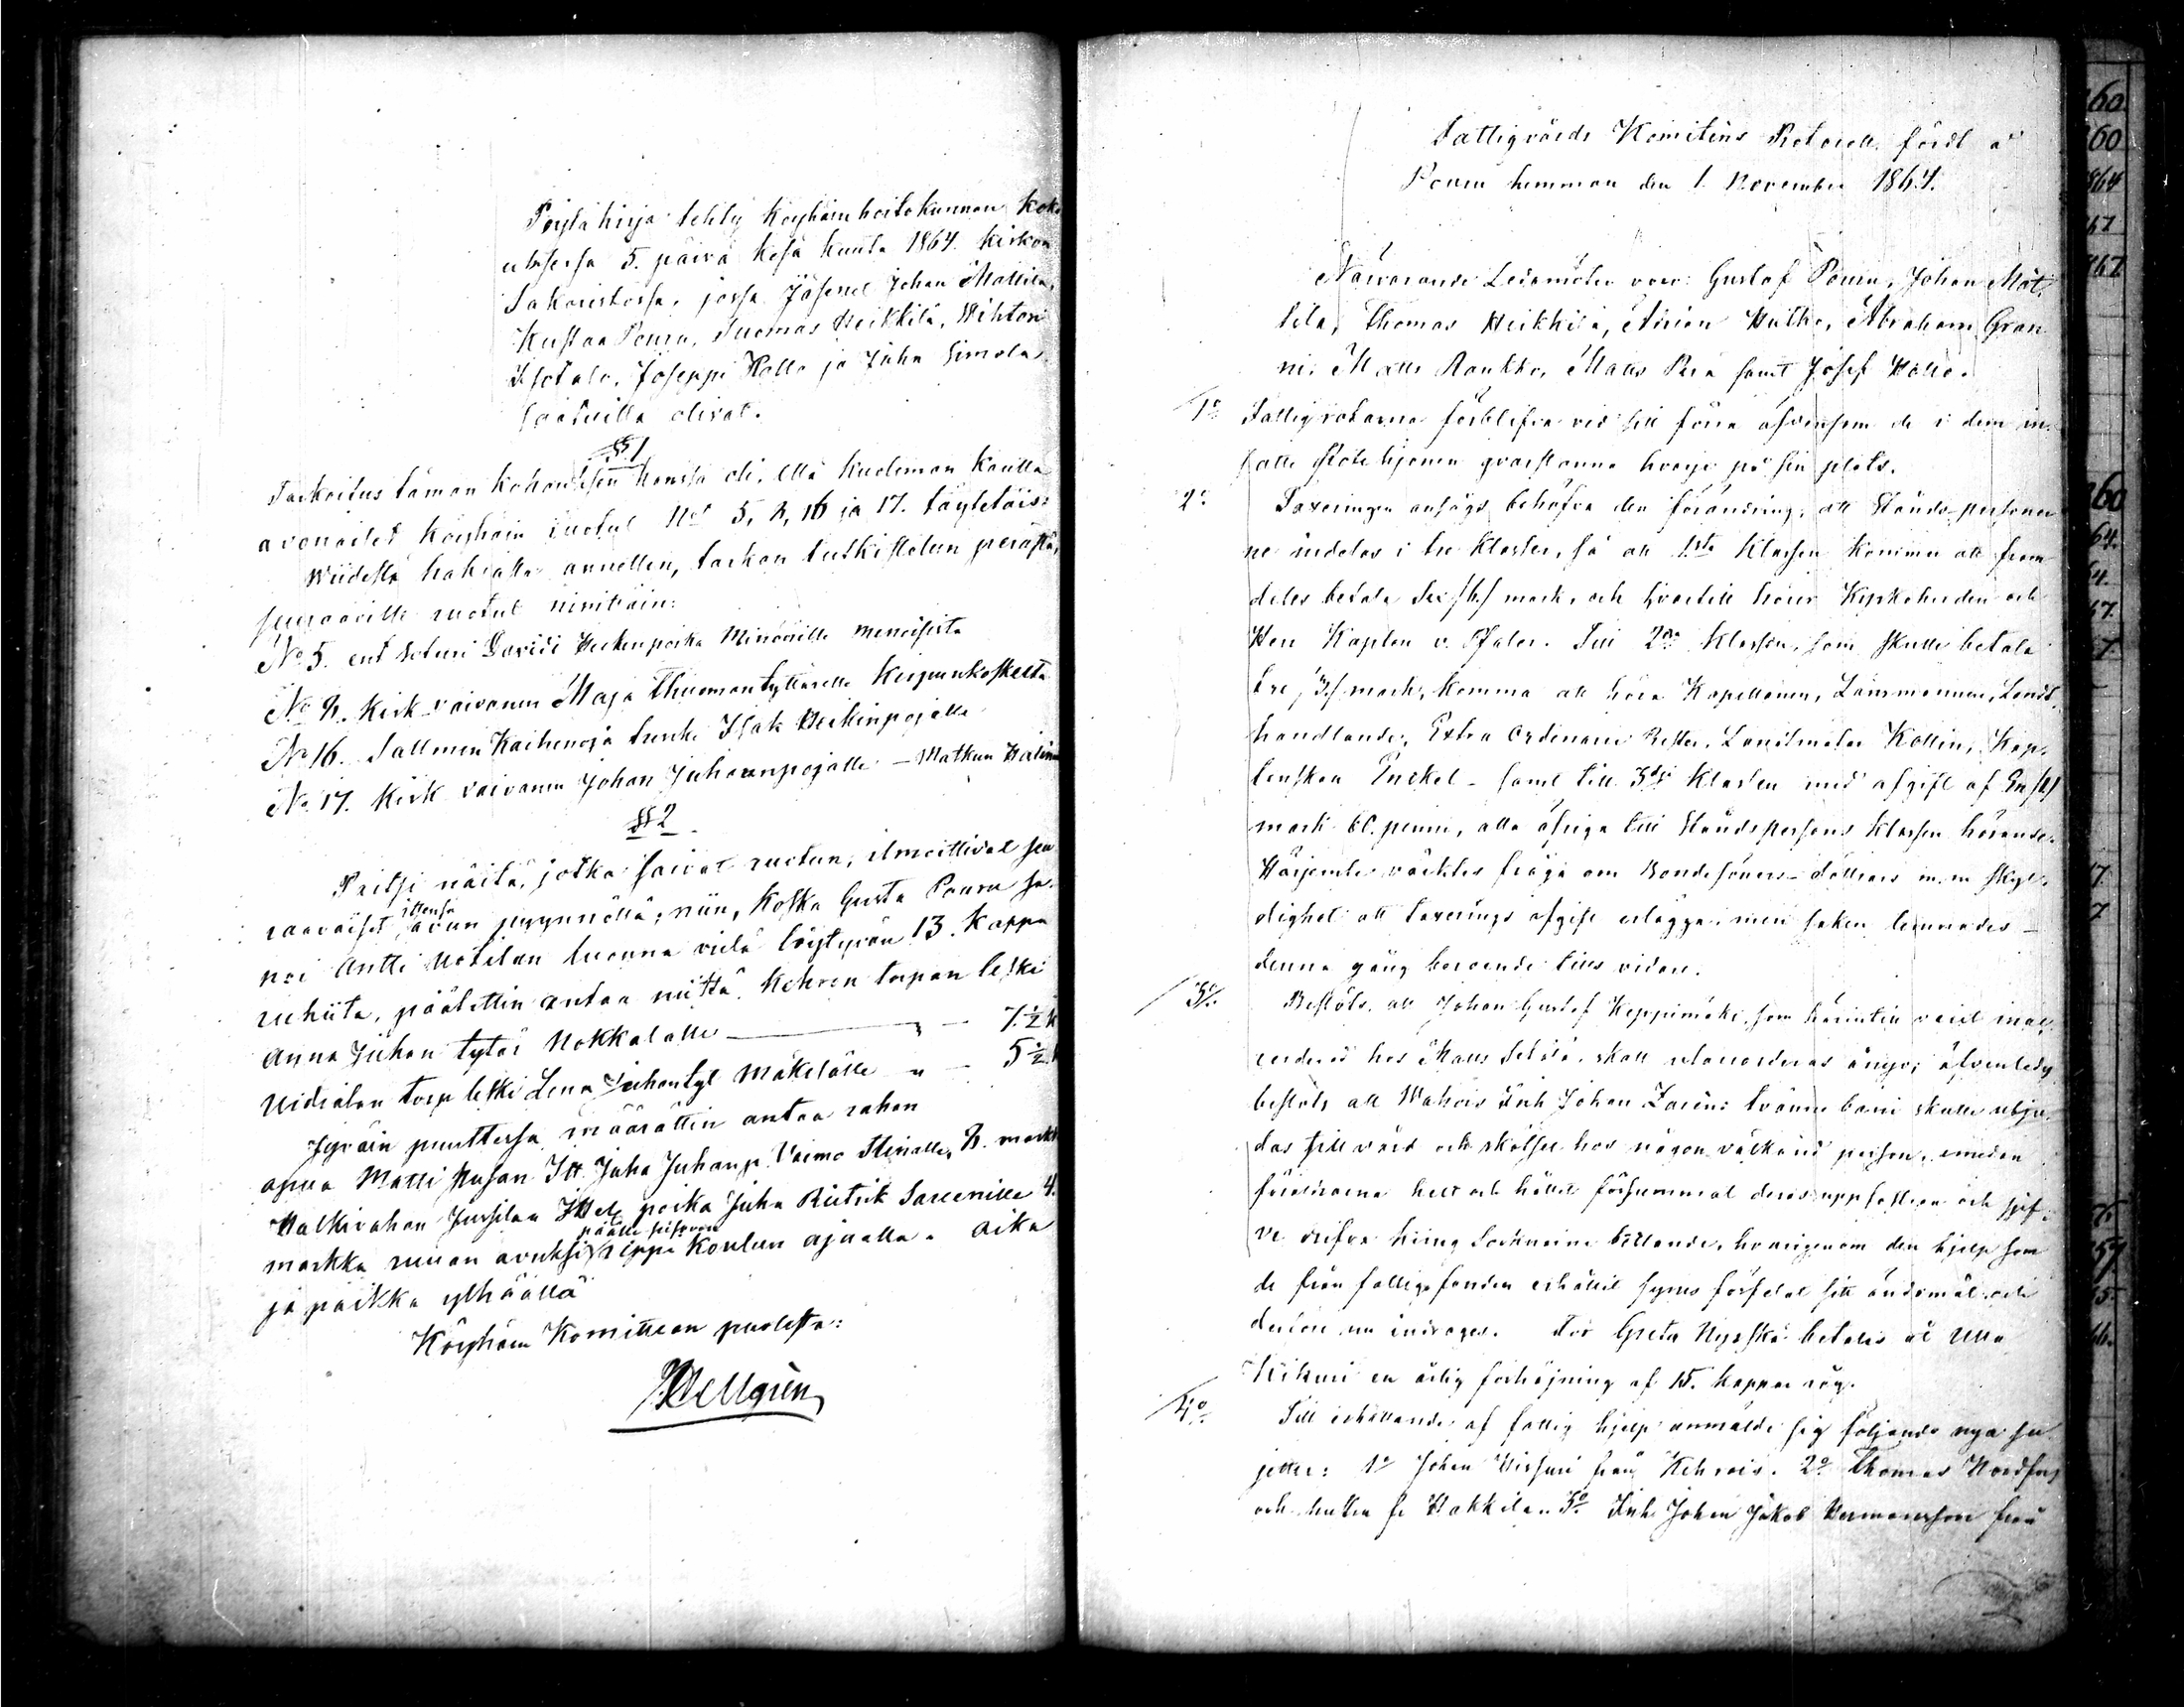 Pöytäkirja tehty Köyhäinhoitokunnan koko
uksessa 5. päivä Kesä kuuta 1864. Kirkon
Sakaristossa, jossa Jäsenet Johan Mattila,
Kustaa Poura, Tuomas Heikkilä, Wihtori
Isotalo, Joseppi Hollo ja Juha Simola
saatuilla olivat.
§ 1
Tarkoitus tämän kohouksen kanssa oli, että kuoleman kautta
avonaiset Köyhäin ruotut No 5, 8, 16 ja 17. täytetäis:
Wiidestä hakialle annettin, tarkan tutkistelun perästä,
seuraaville ruotut nimittäin:
No 5. ent Soturi Davidi Heikinpoika
No 8. Kirk vaivanen Maja Thuomontyttärelle
No 16. Sallmen Kaihenoja Isak Heikinpojalle
No 17. Kirk vaivanen Johan Juhaanpojalle – Matkun
§ 2
Paitsi näitä, jotka saivat ruotun, ilmoittivat
ittensä
raavaiset avun pyynnöllä; niin, koska Gusta Poura
noi Antti Uotilan luonna vielä löytyvän 13. Kappa
ruhiita, päätettin antaa niittä. Kehron torpan leski
Anna Juhan tytär Nokkalalle — „ — 7 ½ k
torp leski Lena Juhantyt Mäkelälle „ — 5 ½
Jyväin puuttessa määrättin antaa rahan
apua Matti Itt Juha Juhanp. Vaimo Stinalle, 8. markk
Jussilan poika Juha 4.
päälle seisovan
markka ruuan avuksi rippi Koulun ajaalla. Aika
ja paikka ylhäällä
Köyhäin Komitean puolesta:
Hellgrén

Fattigvårds Komiténs Protocoll fördt å
Poura hemman den 1. November 1864.
Närvarande Ledamöter voro: Gustaf Poura, Johan Mat,
tila, Thomas Heikkilä, Huhko, Abraham Gran
ni, Matts Raukko, Matts Perä samt Josef Hollo.
1o Fattigrotarna förblifva vid sitt förra äfvensom de i dem in,
satte Rotehjonen qvarstanna hvarje på sin plats.
2o Taxeringen ansågs behöfva den förändring, att Ståndspersoner
ne indelas i tre klasser, så att 1sta klassen kommer att fram
deles betala Sex /6/ mark, och hvartill hörer Kyrkoherden och
Herr Kapten v. Pfaler. Till 2dra klassen, som skulle betala
tre /3./ mark, komma att höra Kapellanen, Länsmannen, Landt,
handlande, Extra Ordinarie Landtmätar Kollin, Kap,
tenskan Enckel – samt till 3dje klassen med afgift af En /1/
mark 60. penni, alla öfriga till Ståndspersons klassen hörande.
Härjemte väcktes fråga om Bondesöners – döttrars m. m skyl,
dighet att taxerings afgift erlägga; men saken lemnades –
denna gång beroende tills vidare.
3o Beslöts, att Johan Gustaf Keppimäki, som härintill varit inac,
corderad hos Matts skall utaccorderas ånyo; äfvenledes
beslöts att Inh Johan tvänne barn skulle utbju,
das till vård och skötsel hos någon välkänd person, emedan
föräldrarna helt och hållet försummat deras uppfostran och sjel,
ve drifva kring Socknarne bettlande, hvarigenom den hjelp som
de från fattigfonden erhållit synes förfelat sitt ändamål och
derföre nu indrages. För Greta betalas åt Ulla
en årlig förhöjning af 15. kappar råg.
4o Till erhållande af fattig hjelp anmälde sig följande nya su
jetter: 1o Johan från Kehrois. 2o Thomas Nordfors
och hustru fr Hakkila. 3o Inh Johan Jakob Hermansson från